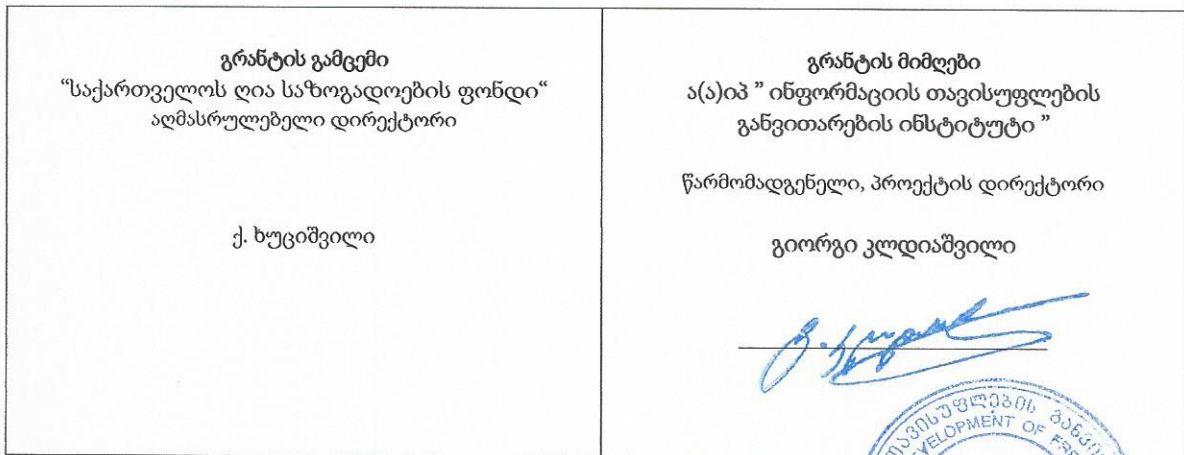 გრანტის გამცემი
“საქართველოს ღია საზოგადოების ფონდი“
აღმასრულებელი დირექტორი
ქ. ხუციშვილი
გრანტის მიმღები
ა(ა)იპ ” ინფორმაციის თავისუფლების
განვითარების ინსტიტუტი ”
წარმომადგენელი, პროექტის დირექტორი
გიორგი კლდიაშვილი
თავისუფლების განვი
VELOPMENT OF FRE